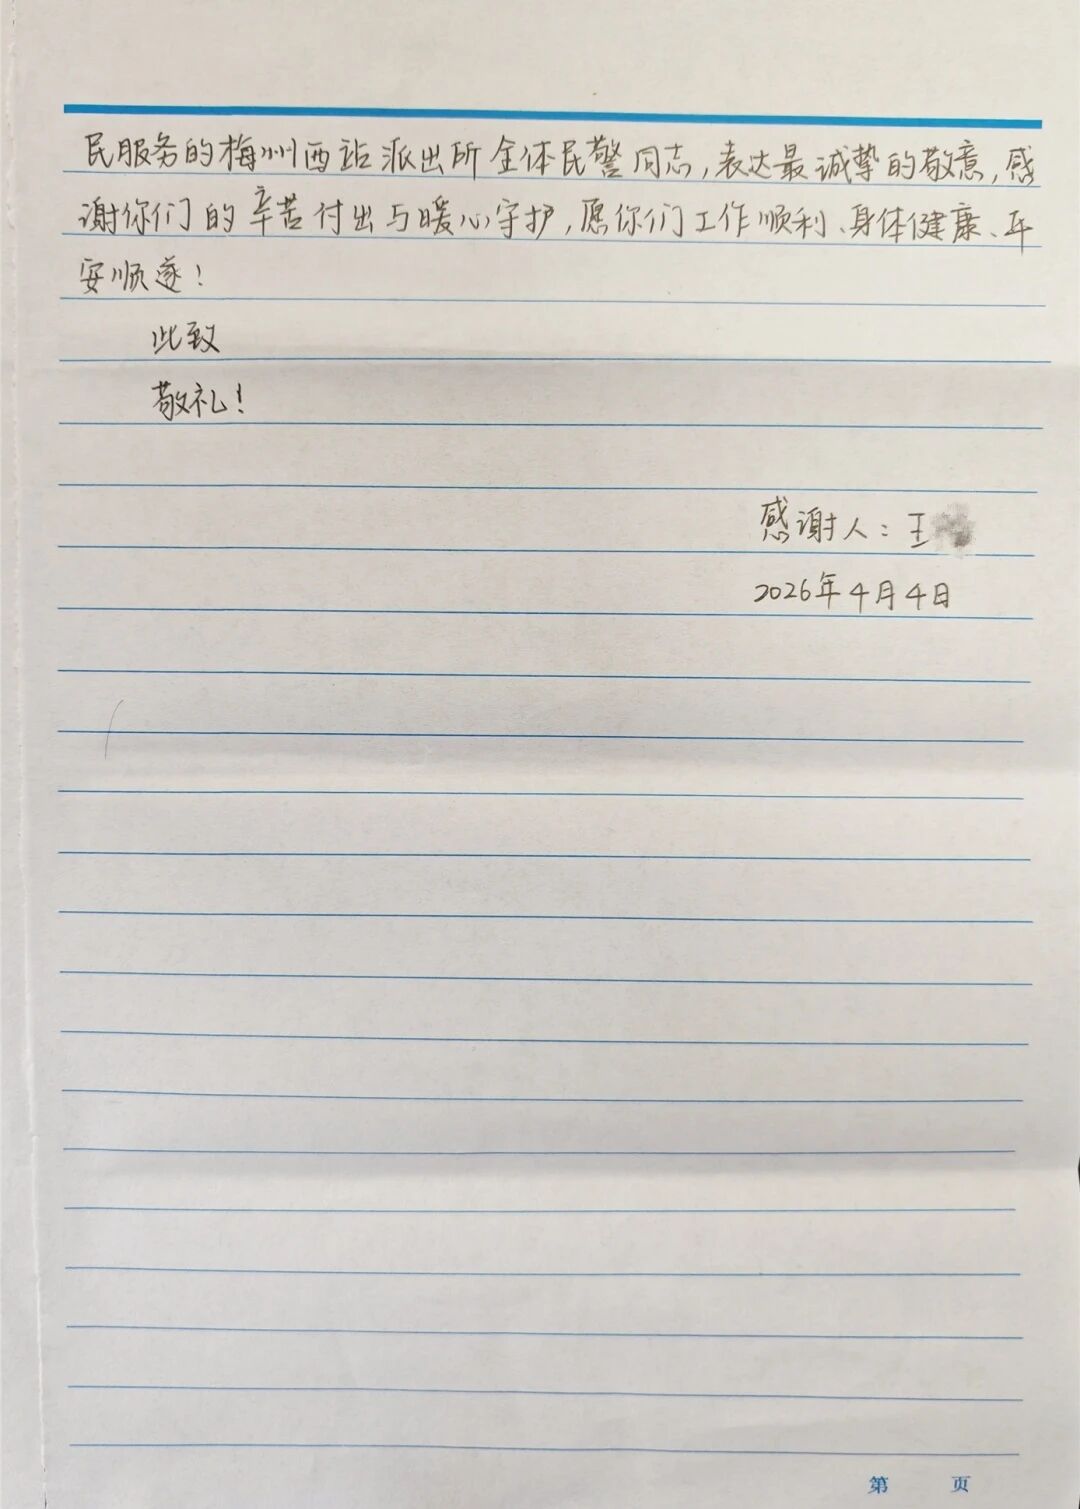 民服务的梅州西站派出所全体民警同志,表达最诚挚的敬意,感
谢你们的辛苦付出与暖心守护,愿你们工作顺利、身体健康、平
安顺遂!
此致
敬礼!
感谢人:王
2026年4月4日
第 页